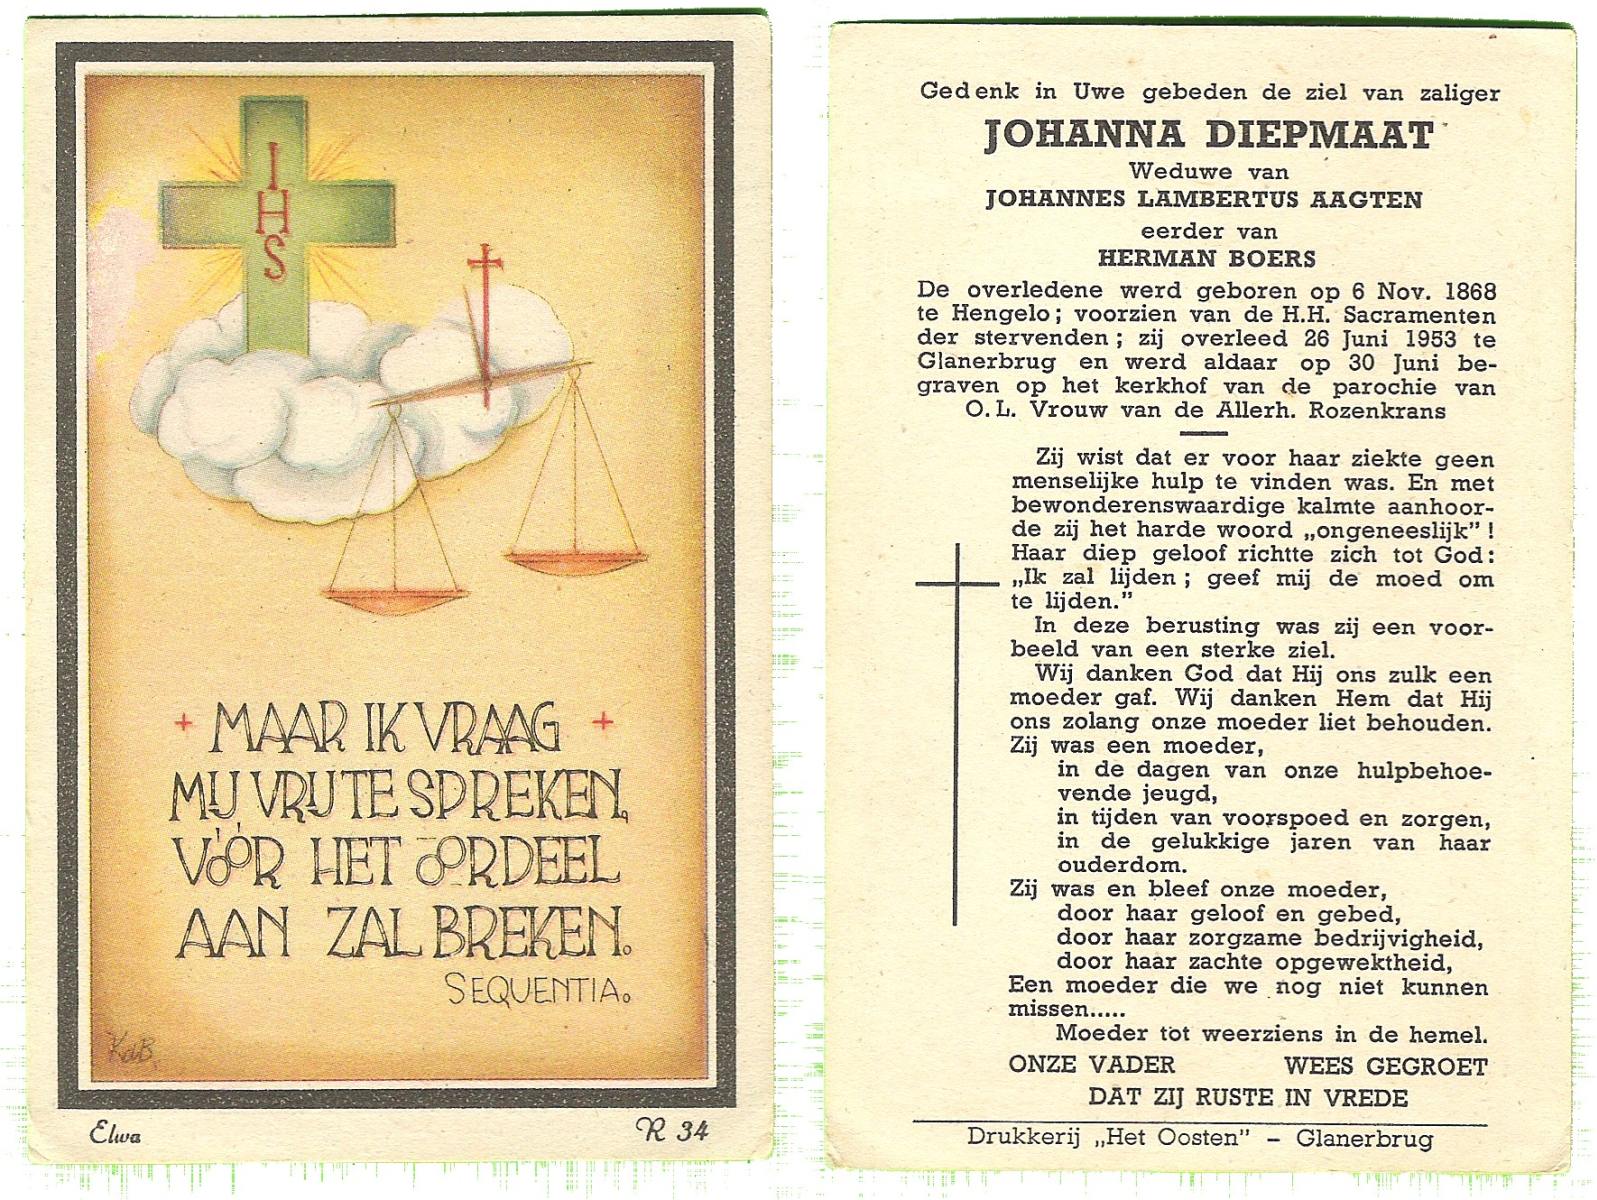 I
H
S
+ MAAR IK VRAAG +
MIJ VRIJ TE SPREKEN,
VÓÓR HET OORDEEL
AAN ZAL BREKEN.
SEQUENTIA.
KdB.
Elwa R 34
Gedenk in Uwe gebeden de ziel van zaliger
JOHANNA DIEPMAAT
Weduwe van
JOHANNES LAMBERTUS AAGTEN
eerder van
HERMAN BOERS
De overledene werd geboren op 6 Nov. 1868
te Hengelo; voorzien van de H.H. Sacramenten
der stervenden; zij overleed 26 Juni 1953 te
Glanerbrug en werd aldaar op 30 Juni be-
graven op het kerkhof van de parochie van
O.L. Vrouw van de Allerh. Rozenkrans
Zij wist dat er voor haar ziekte geen
menselijke hulp te vinden was. En met
bewonderenswaardige kalmte aanhoor-
de zij het harde woord „ongeneeslijk”!
Haar diep geloof richtte zich tot God:
„Ik zal lijden; geef mij de moed om
te lijden.”
In deze berusting was zij een voor-
beeld van een sterke ziel.
Wij danken God dat Hij ons zulk een
moeder gaf. Wij danken Hem dat Hij
ons zolang onze moeder liet behouden.
Zij was een moeder,
in de dagen van onze hulpbehoe-
vende jeugd,
in tijden van voorspoed en zorgen,
in de gelukkige jaren van haar
ouderdom.
Zij was en bleef onze moeder,
door haar geloof en gebed,
door haar zorgzame bedrijvigheid,
door haar zachte opgewektheid,
Een moeder die we nog niet kunnen
missen.....
Moeder tot weerziens in de hemel.
ONZE VADER WEES GEGROET
DAT ZIJ RUSTE IN VREDE
Drukkerij „Het Oosten” - Glanerbrug